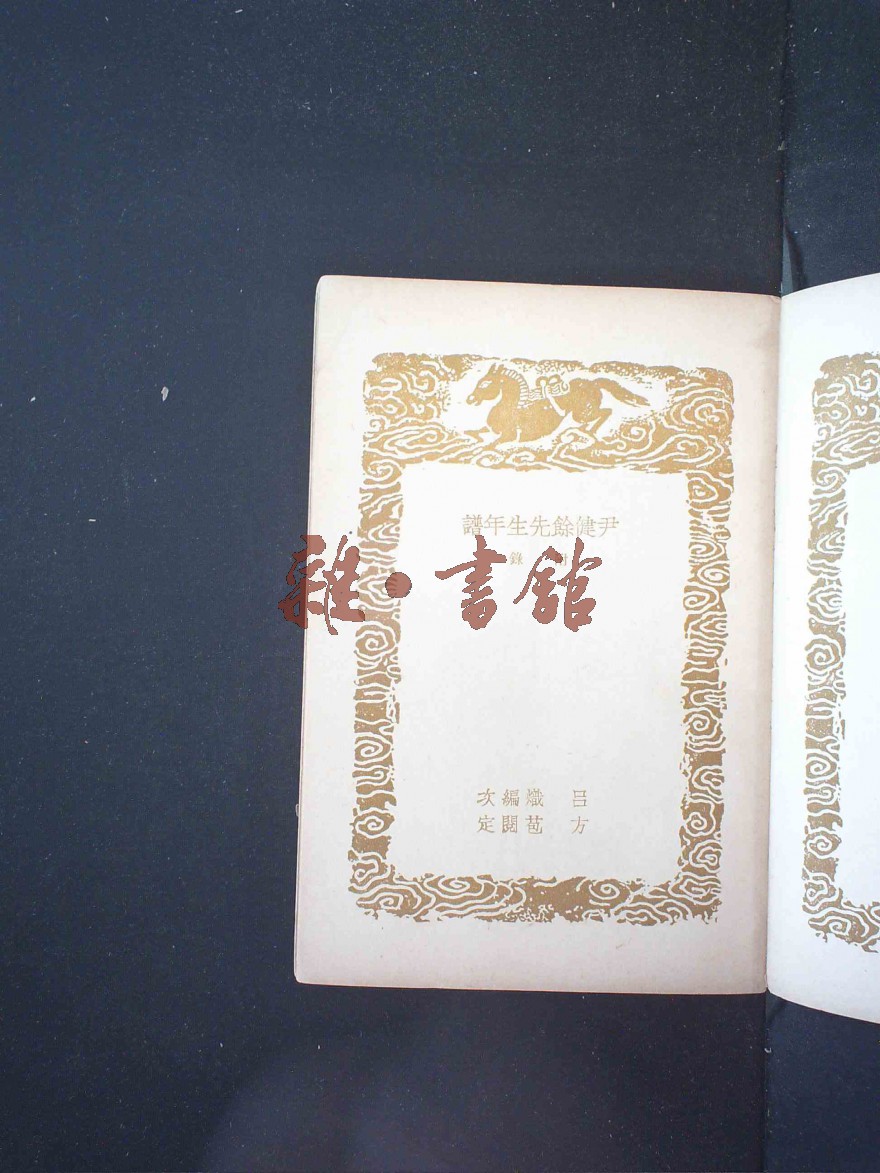 尹健餘先生年譜
附錄
雜·書館
呂熾編次
方苞閱定